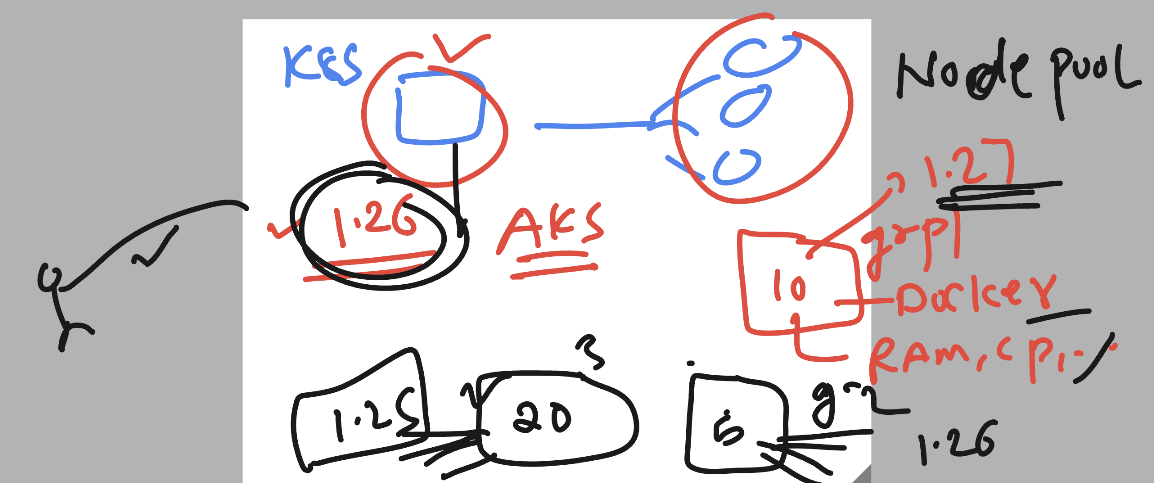 K8S
Node pool
1.27
1.26
AKS
grp1
10
Docker
RAM, CP
3
1.25
20
5
g-2
1.26